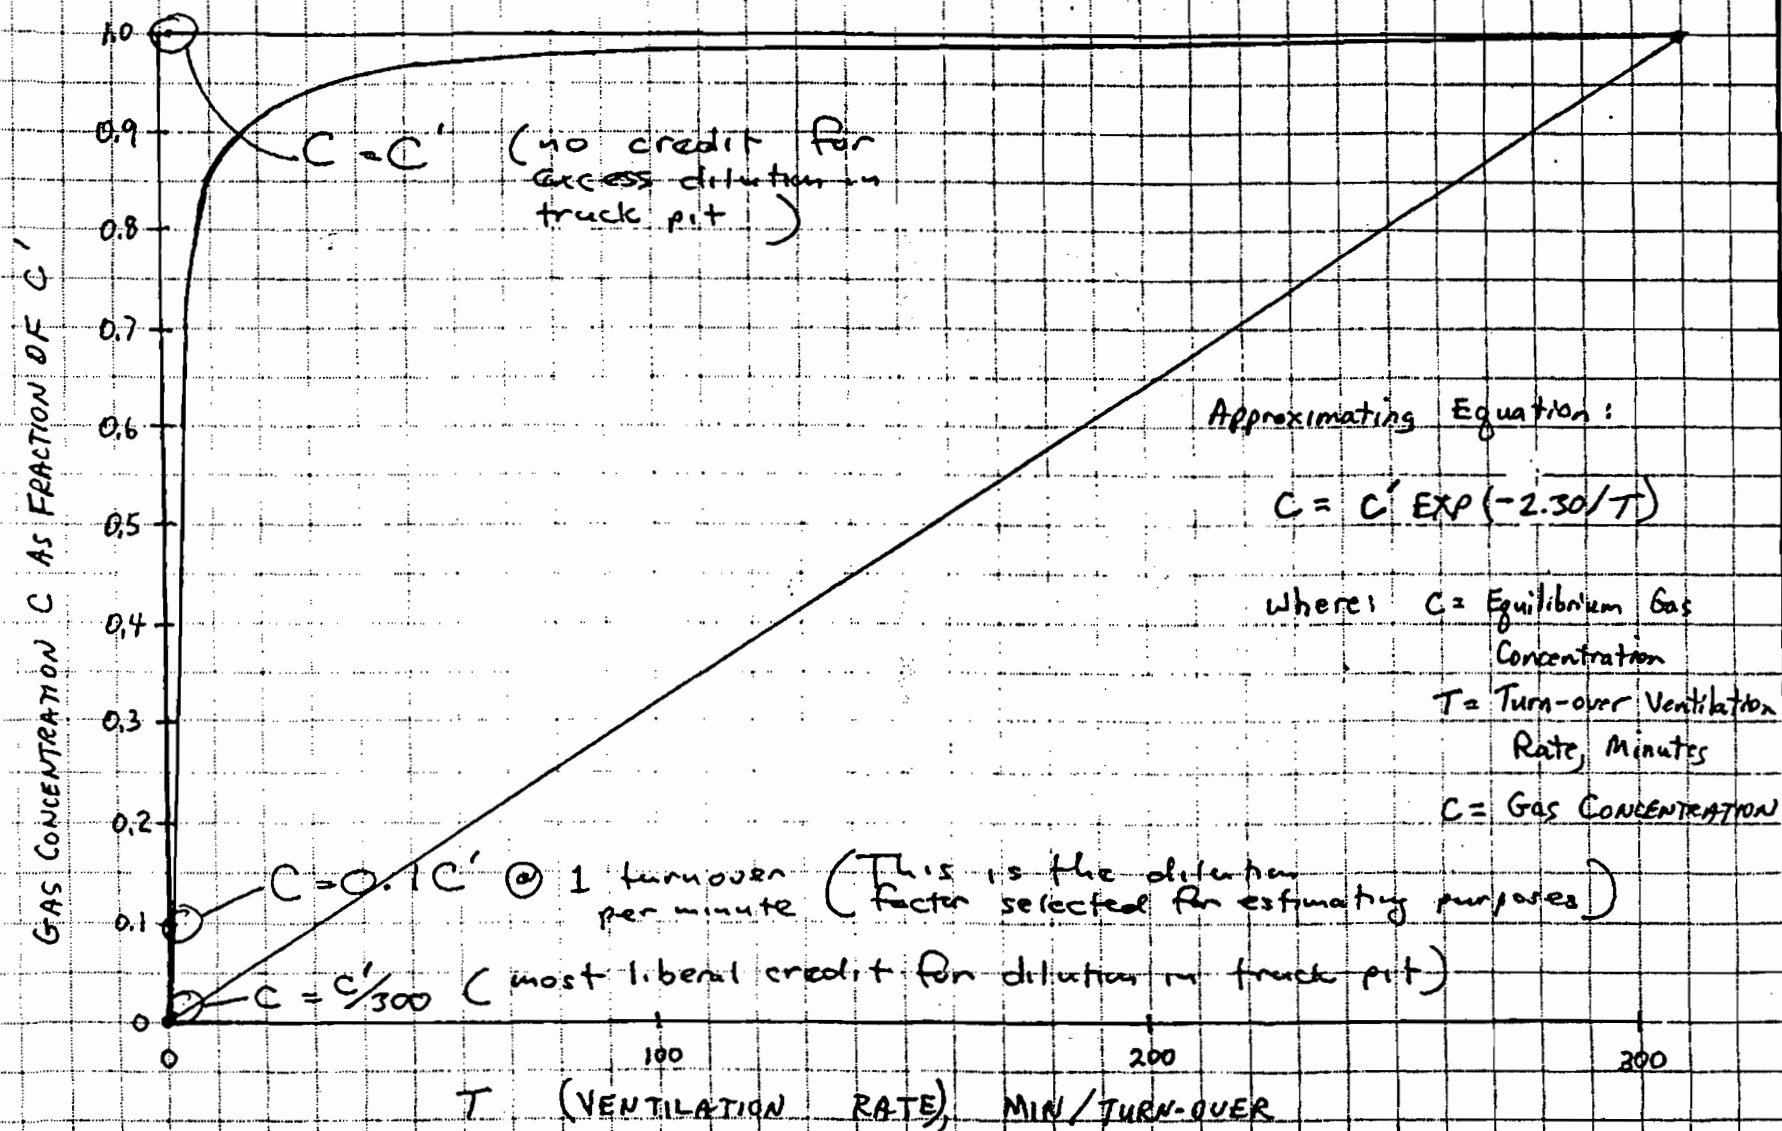 GAS CONCENTRATION C AS FRACTION OF C'
1.0
0.9
0.8
0.7
0.6
0.5
0.4
0.3
0.2
0.1
0
C = C' (no credit for
excess dilution in
truck pit)
Approximating Equation:
C = C' EXP(-2.30/T)
Where: C = Equilibrium Gas
Concentration
T = Turn-over Ventilation
Rate, Minutes
C = Gas CONCENTRATION
C = 0.1 C' @ 1 turnover
per minute
(This is the dilution
factor selected for estimating purposes)
C = C'/300 (most liberal credit for dilution in truck pit)
0 100 200 300
T (VENTILATION RATE), MIN/TURN-OVER